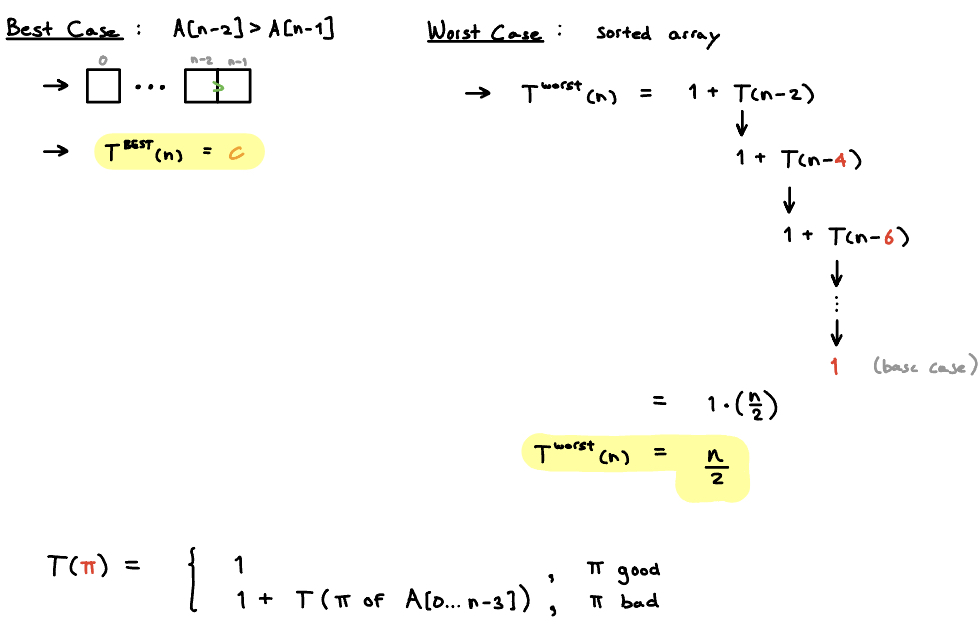 Best Case : A[n-2] > A[n-1]
→ 0 ... n-2 > n-1
→ T^BEST(n) = c
Worst Case : Sorted array
→ T^worst(n) = 1 + T(n-2)
↓
1 + T(n-4)
↓
1 + T(n-6)
↓
⋮
↓
1 (base case)
= 1 · (n/2)
T^worst(n) = n/2
T(π) = { 1 , π good
1 + T(π of A[0...n-3]) , π bad